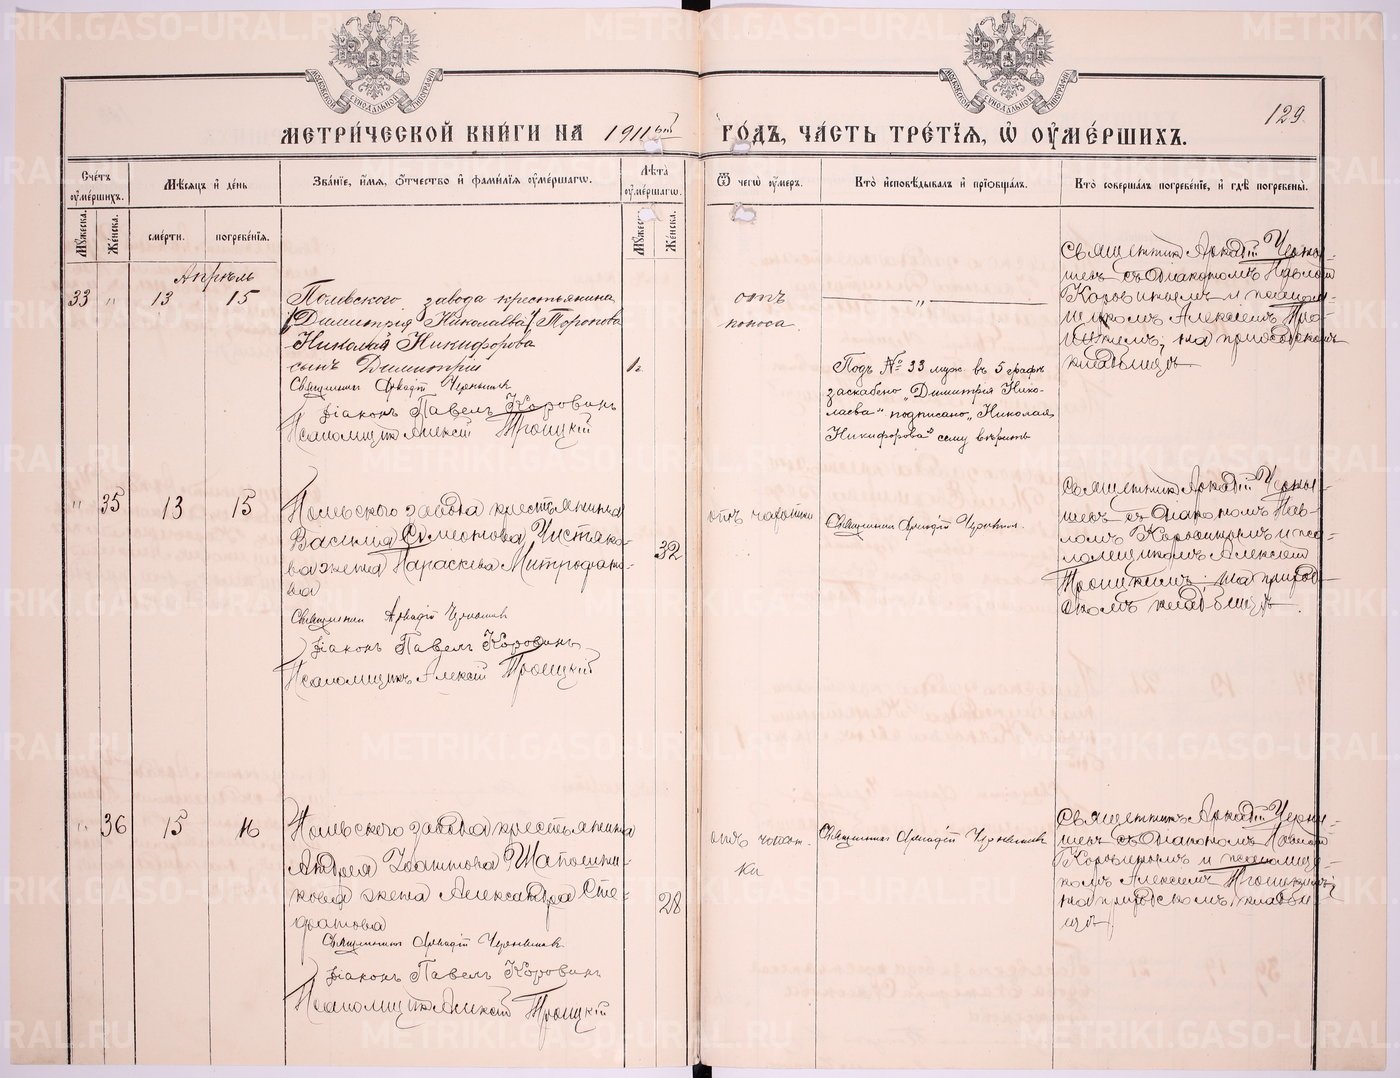 129.
МЕТРИ́ЧЕСКОЙ КНИ́ГИ НА 1911ый ГО́ДЪ, ЧА́СТЬ ТРЕ́ТІѦ, Ѿ ОУМЕ́РШИХЪ.
Сче́тъ оуме́ршихъ.
Мꙋ́жеска.
Же́нска.
Мѣ́сѧцъ и҆ де́нь
сме́рти.
погребе́нїѧ.
Зва́нїе, и҆́мѧ, ѻ҆́тчество и҆ фами́лїѧ оуме́ршагѡ.
Лѣ́та оуме́ршагѡ.
Мꙋ́жес
Же́нска.
Ѿ чегѡ̀ оу́меръ.
Кто̀ и҆сповѣ́дывалъ и҆ прїѡбща́лъ.
Кто̀ соверша́лъ погребе́нїе, и҆ гдѣ̀ погребены̀.
Апрѣль
33 " 13 15
Полевского завода крестьянина
(Димитрія Николаева) Торопова
Николая Никифорова
сынъ Димитрій
1г.
Священникъ Аркадій Чернышевъ
Діаконъ Павелъ Коровинъ
Псаломщикъ Алексій Троицкій
отъ
поноса.
"
Подъ № 33 муж. въ 5 графѣ
заскаблено „Димитрія Нико-
лаева“ подписано „Николая
Никифорова“ сему вѣрить
Священникъ Аркадій Черны-
шевъ съ діакономъ Павломъ
Коровинымъ и псалом-
щикомъ Алексіемъ Тро-
ицкимъ; на приходскомъ
кладбищѣ
" 35 13 15
Полевского завода крестьянина
Василія Симеонова Чистяко-
ва жена Параскева Митрофано-
ва
32
Священникъ Аркадій Чернышевъ
Діаконъ Павелъ Коровинъ
Псаломщикъ Алексій Троицкій
отъ чахотки
Священникъ Аркадій Чернышевъ.
Священникъ Аркадій Черны-
шевъ съ діакономъ Пав-
ломъ Коровинымъ и пса-
ломщикомъ Алексіемъ
Троицкимъ; на приход-
скомъ кладбищѣ
" 36 15 16
Полевского завода крестьянина
Андрея Іоаннова Шапошни-
кова жена Александра Сте-
фанова
28
Священникъ Аркадій Чернышевъ
Діаконъ Павелъ Коровинъ
Псаломщикъ Алексій Троицкій
отъ чахот-
ки
Священникъ Аркадій Чернышевъ
Священникъ Аркадій Черны-
шевъ съ діакономъ Павломъ
Коровинымъ и псаломщи-
комъ Алексіемъ Троицкимъ;
на приходскомъ кладби-
щѣ
METRIKI.GASO-URAL.RU